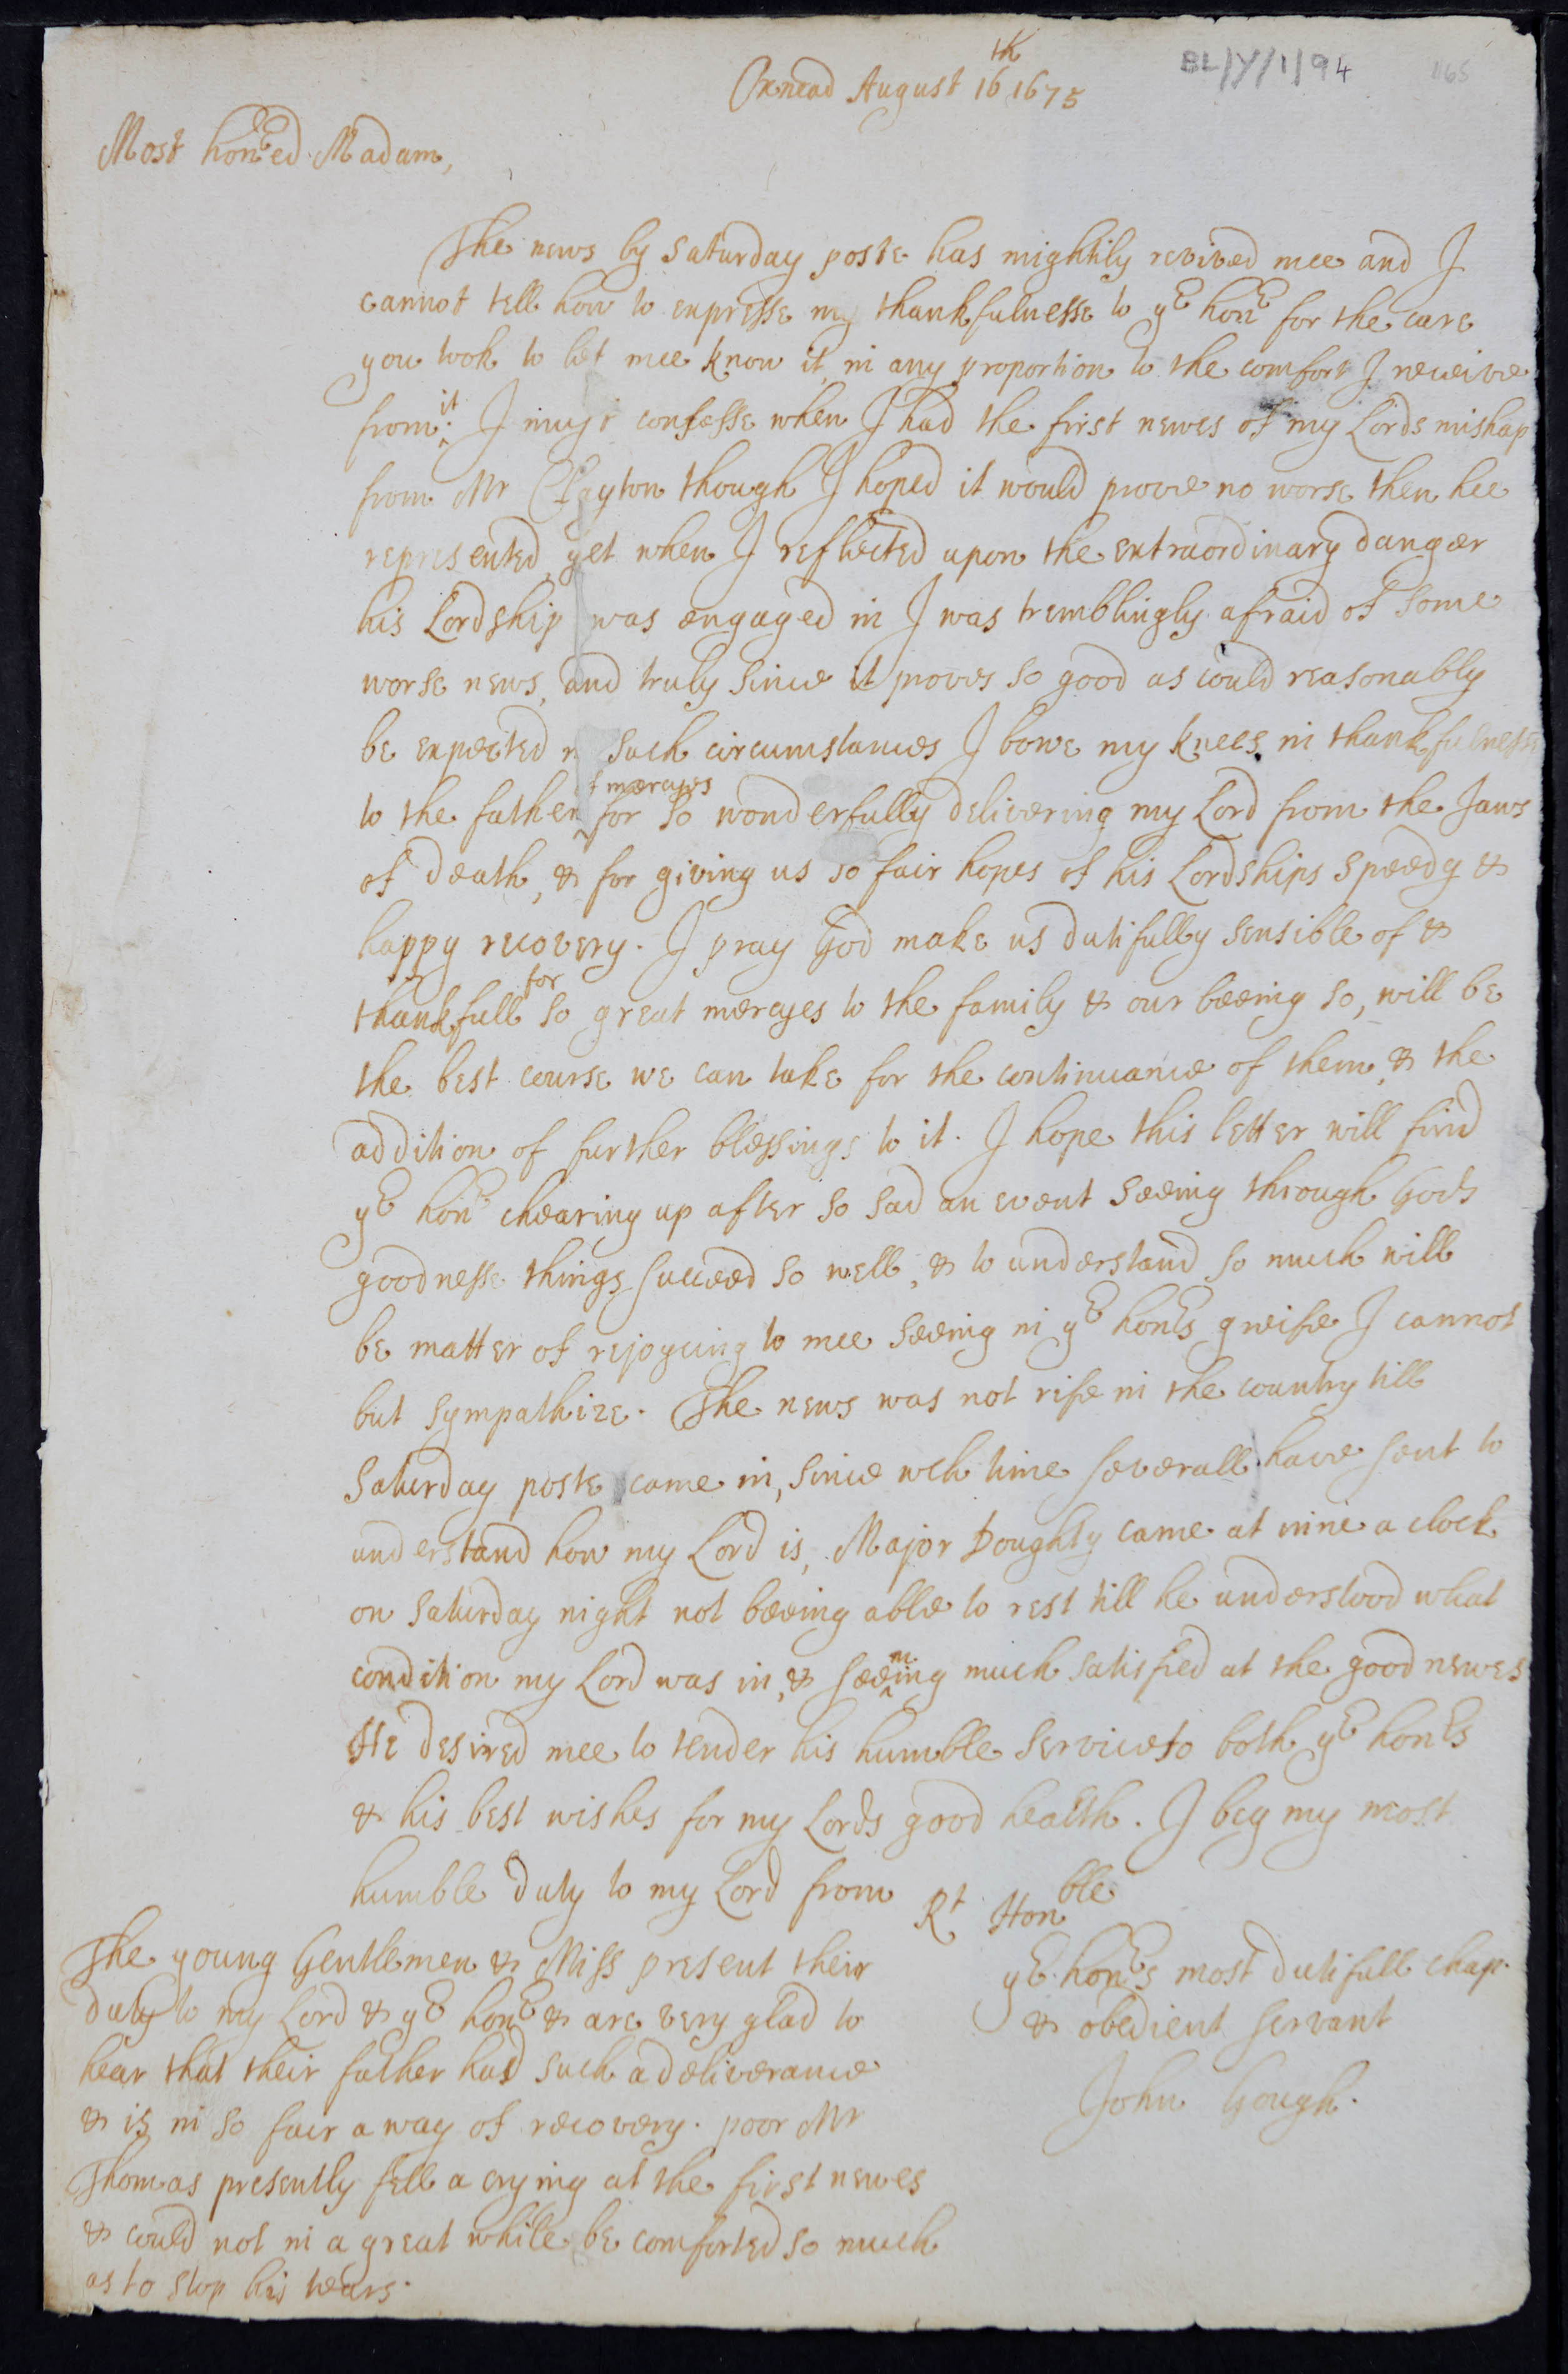 Oxnead August 16th 1675
BL/Y/1/94
165
Most honred Madam,
The news by Saturday poste has mightily revived mee and I
cannot tell how to expresse my thankfulnesse to yr honr for the care
you took to let mee know it, in any proportion to the comfort I receive
from it: I must confesse when I had the first newes of my Lords mishap
from Mr Clayton though I hoped it would prove no worse then hee
represented, yet when I reflected upon the extraordinary danger
his Lordship was engaged in I was tremblingly afraid of some
worse news, and truly since it proves so good as could reasonably
be expected in such circumstances I bowe my knees in thankfulnesse
to the father of mercyes for so wonderfully delivering my Lord from the Jaws
of death, & for giving us so fair hopes of his Lordships speedy &
happy recovery. I pray God make us dutifully sensible of &
thankfull for so great mercyes to the family & our beeing so, will be
the best course we can take for the continuance of them, & the
addition of further blessings to it. I hope this letter will find
yr honr chearing up after so sad an event seeing through Gods
goodnesse things succeed so well, & to understand so much will
be matter of rejoycing to mee seeing in yr honrs greife I cannot
but sympathize. The news was not rife in the country till
Saturday poste came in, since wch time severall have sent to
understand how my Lord is, Major Doughty came at nine a clock
on Saturday night not beeing able to rest till he understood what
condition my Lord was in, & seeming much satisfied at the good newes
He desired mee to tender his humble service to both yr honrs
& his best wishes for my Lords good health. I beg my most
humble duty to my Lord from Rt Honble
yr honrs most dutifull chap.
& obedient servant
John Gough.
The young Gentlemen & Miss present their
duty to my Lord & yr honr & are very glad to
hear that their father had such a deliverance
& is in so fair a way of recovery. poor Mr
Thomas presently fell a crying at the first newes
& could not in a great while be comforted so much
as to stop his tears.